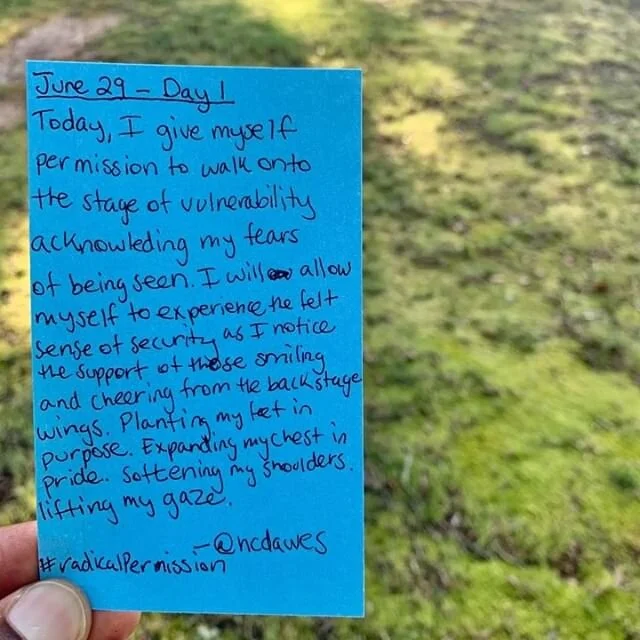 June 29 - Day 1
Today, I give myself
permission to walk onto
the stage of vulnerability
acknowleding my fears
of being seen. I will allow
myself to experience the felt
sense of security as I notice
the support of those smiling
and cheering from the backstage
wings. Planting my feet in
purpose. Expanding my chest in
pride. Softening my shoulders.
lifting my gaze.
-@ncdawes
#radicalPermission